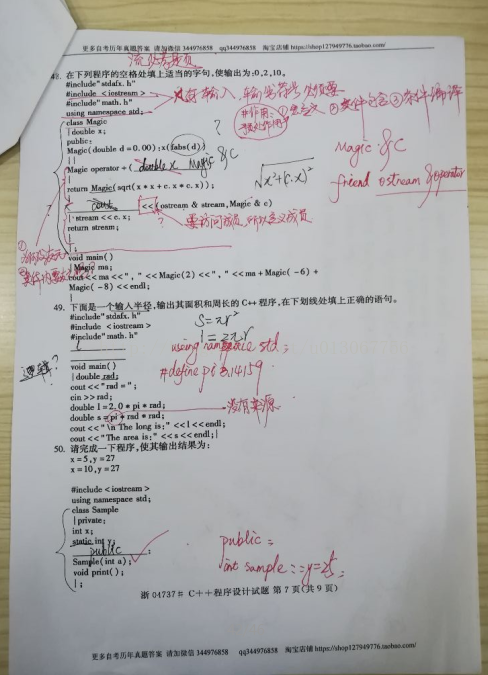 更多自考历年真题答案 请加微信 344976858 qq344976858 淘宝店铺 https://shop127949776.taobao.com/
48. 在下列程序的空格处填上适当的字句,使输出为:0,2,10。
#include"stdafx. h"
#include < iostream >
#include"math. h"
using namespace std;
class Magic
{double x;
public:
Magic(double d=0.00):x(fabs(d))
{}
Magic operator + ( double x Magic &C
{
return Magic(sqrt(x*x+c. x*c. x));
}
<<(ostream & stream,Magic & c)
{ stream << c. x;
return stream;
}
void main()
{Magic ma;
cout << ma <<", " << Magic(2) <<", " << ma + Magic( -6) +
Magic( -8) << endl;
}
Magic &C
friend ostream &operator
49. 下面是一个输入半径,输出其面积和周长的 C++程序,在下划线处填上正确的语句。
#include"stdafx. h"
#include < iostream >
#include"math. h"
S=πr²
l=2πr
using namespace std;
#define pi 3.14159
void main()
{double rad;
cout <<"rad =";
cin >> rad;
double l=2.0 * pi * rad;
double s=pi * rad * rad;
没有来源
cout <<"\n The long is:" << l << endl;
cout <<"The area is:" << s << endl;}
50. 请完成一下程序,使其输出结果为:
x=5,y=27
x=10,y=27
#include < iostream >
using namespace std;
class Sample
{private:
int x;
static int y;
public :
Sample(int a);
void print();
};
public:
int sample::y=25;
浙 04737# C++程序设计试题 第 7 页(共 9 页)
更多自考历年真题答案 请加微信 344976858 qq344976858 淘宝店铺 https://shop127949776.taobao.com/